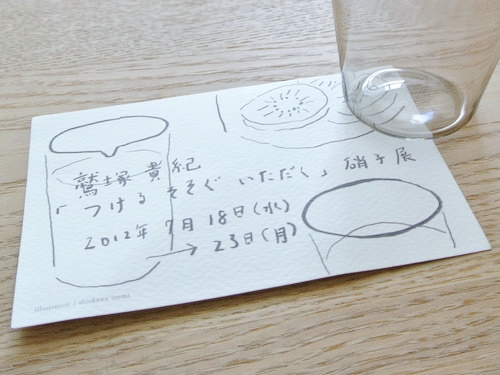 鷲塚貴紀
「つける そそぐ いただく」硝子展
2012年 7月18日(水)
→ 23日(月)
illustration / shiokawa izumi